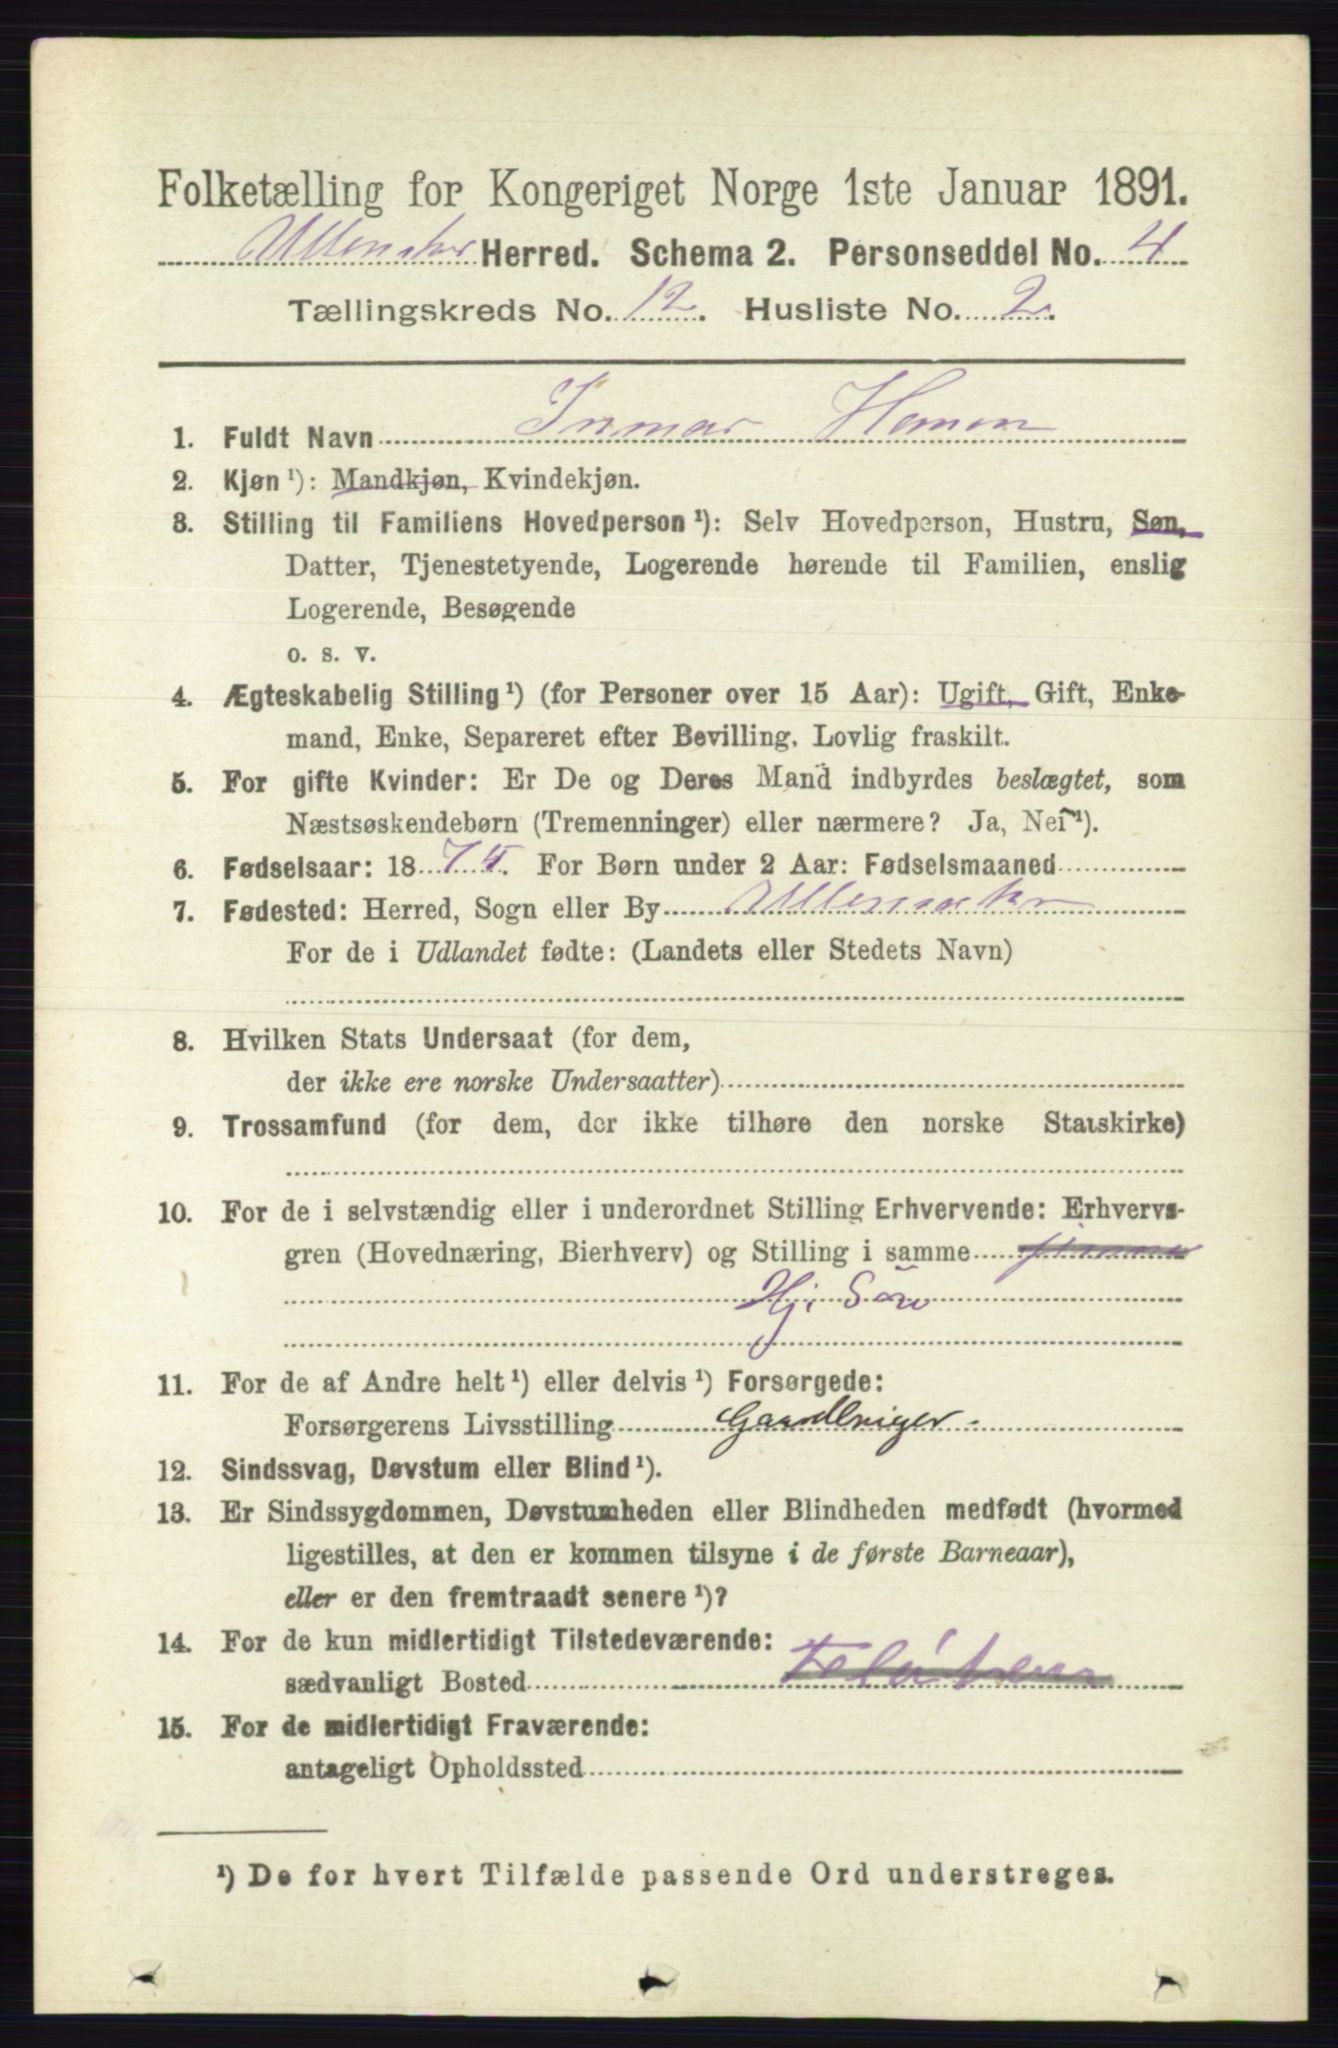 Folketælling for Kongeriget Norge 1ste Januar 1891.
Ullensaker Herred. Schema 2. Personseddel No. 4
Tællingskreds No. 12. Husliste No. 2.
1. Fuldt Navn
2. Kjøn ¹): Mandkjøn, Kvindekjøn.
3. Stilling til Familiens Hovedperson ¹): Selv Hovedperson, Hustru, Søn,
Datter, Tjenestetyende, Logerende hørende til Familien, enslig
Logerende, Besøgende
o. s. v.
4. Ægteskabelig Stilling ¹) (for Personer over 15 Aar): Ugift, Gift, Enke-
mand, Enke, Separeret efter Bevilling. Lovlig fraskilt.
5. For gifte Kvinder: Er De og Deres Mand indbyrdes beslægtet, som
Næstsøskendebørn (Tremenninger) eller nærmere? Ja, Nei ¹).
6. Fødselsaar: 18 For Børn under 2 Aar: Fødselsmaaned
7. Fødested: Herred, Sogn eller By Ullensaker
For de i Udlandet fødte: (Landets eller Stedets Navn)
8. Hvilken Stats Undersaat (for dem,
der ikke ere norske Undersaatter)
9. Trossamfund (for dem, der ikke tilhøre den norske Statskirke)
10. For de i selvstændig eller i underordnet Stilling Erhvervende: Erhvervs-
gren (Hovednæring, Bierhverv) og Stilling i samme
Hj. Søn
11. For de af Andre helt ¹) eller delvis ¹) Forsørgede:
Forsørgerens Livsstilling Gaardbruger
12. Sindssvag, Døvstum eller Blind ¹).
13. Er Sindssygdommen, Døvstumheden eller Blindheden medfødt (hvormed
ligestilles, at den er kommen tilsyne i de første Barneaar),
eller er den fremtraadt senere ¹)?
14. For de kun midlertidigt Tilstedeværende:
sædvanligt Bosted
15. For de midlertidigt Fraværende:
antageligt Opholdssted
¹) De for hvert Tilfælde passende Ord understreges.